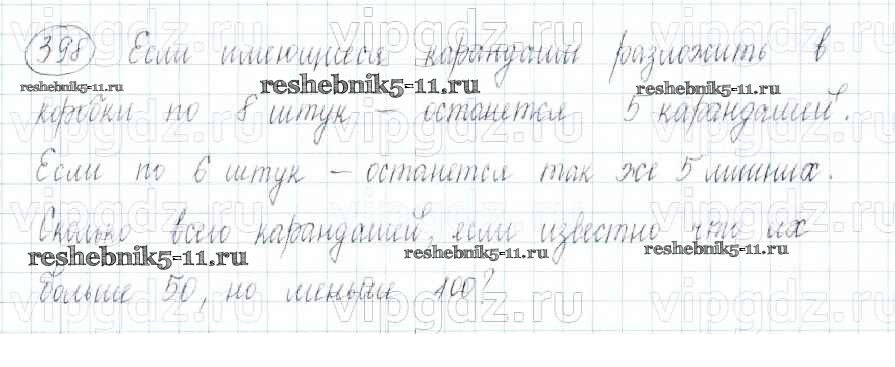 398 Если имеющиеся карандаши разложить в
коробки по 8 штук – останется 5 карандашей.
Если по 6 штук – останется так же 5 лишних.
Сколько всего карандашей, если известно что их
больше 50, но меньше 100?
vipgdz.ru
reshebnik5-11.ru
reshebnik5-11.ru
reshebnik5-11.ru
reshebnik5-11.ru
reshebnik5-11.ru
reshebnik5-11.ru